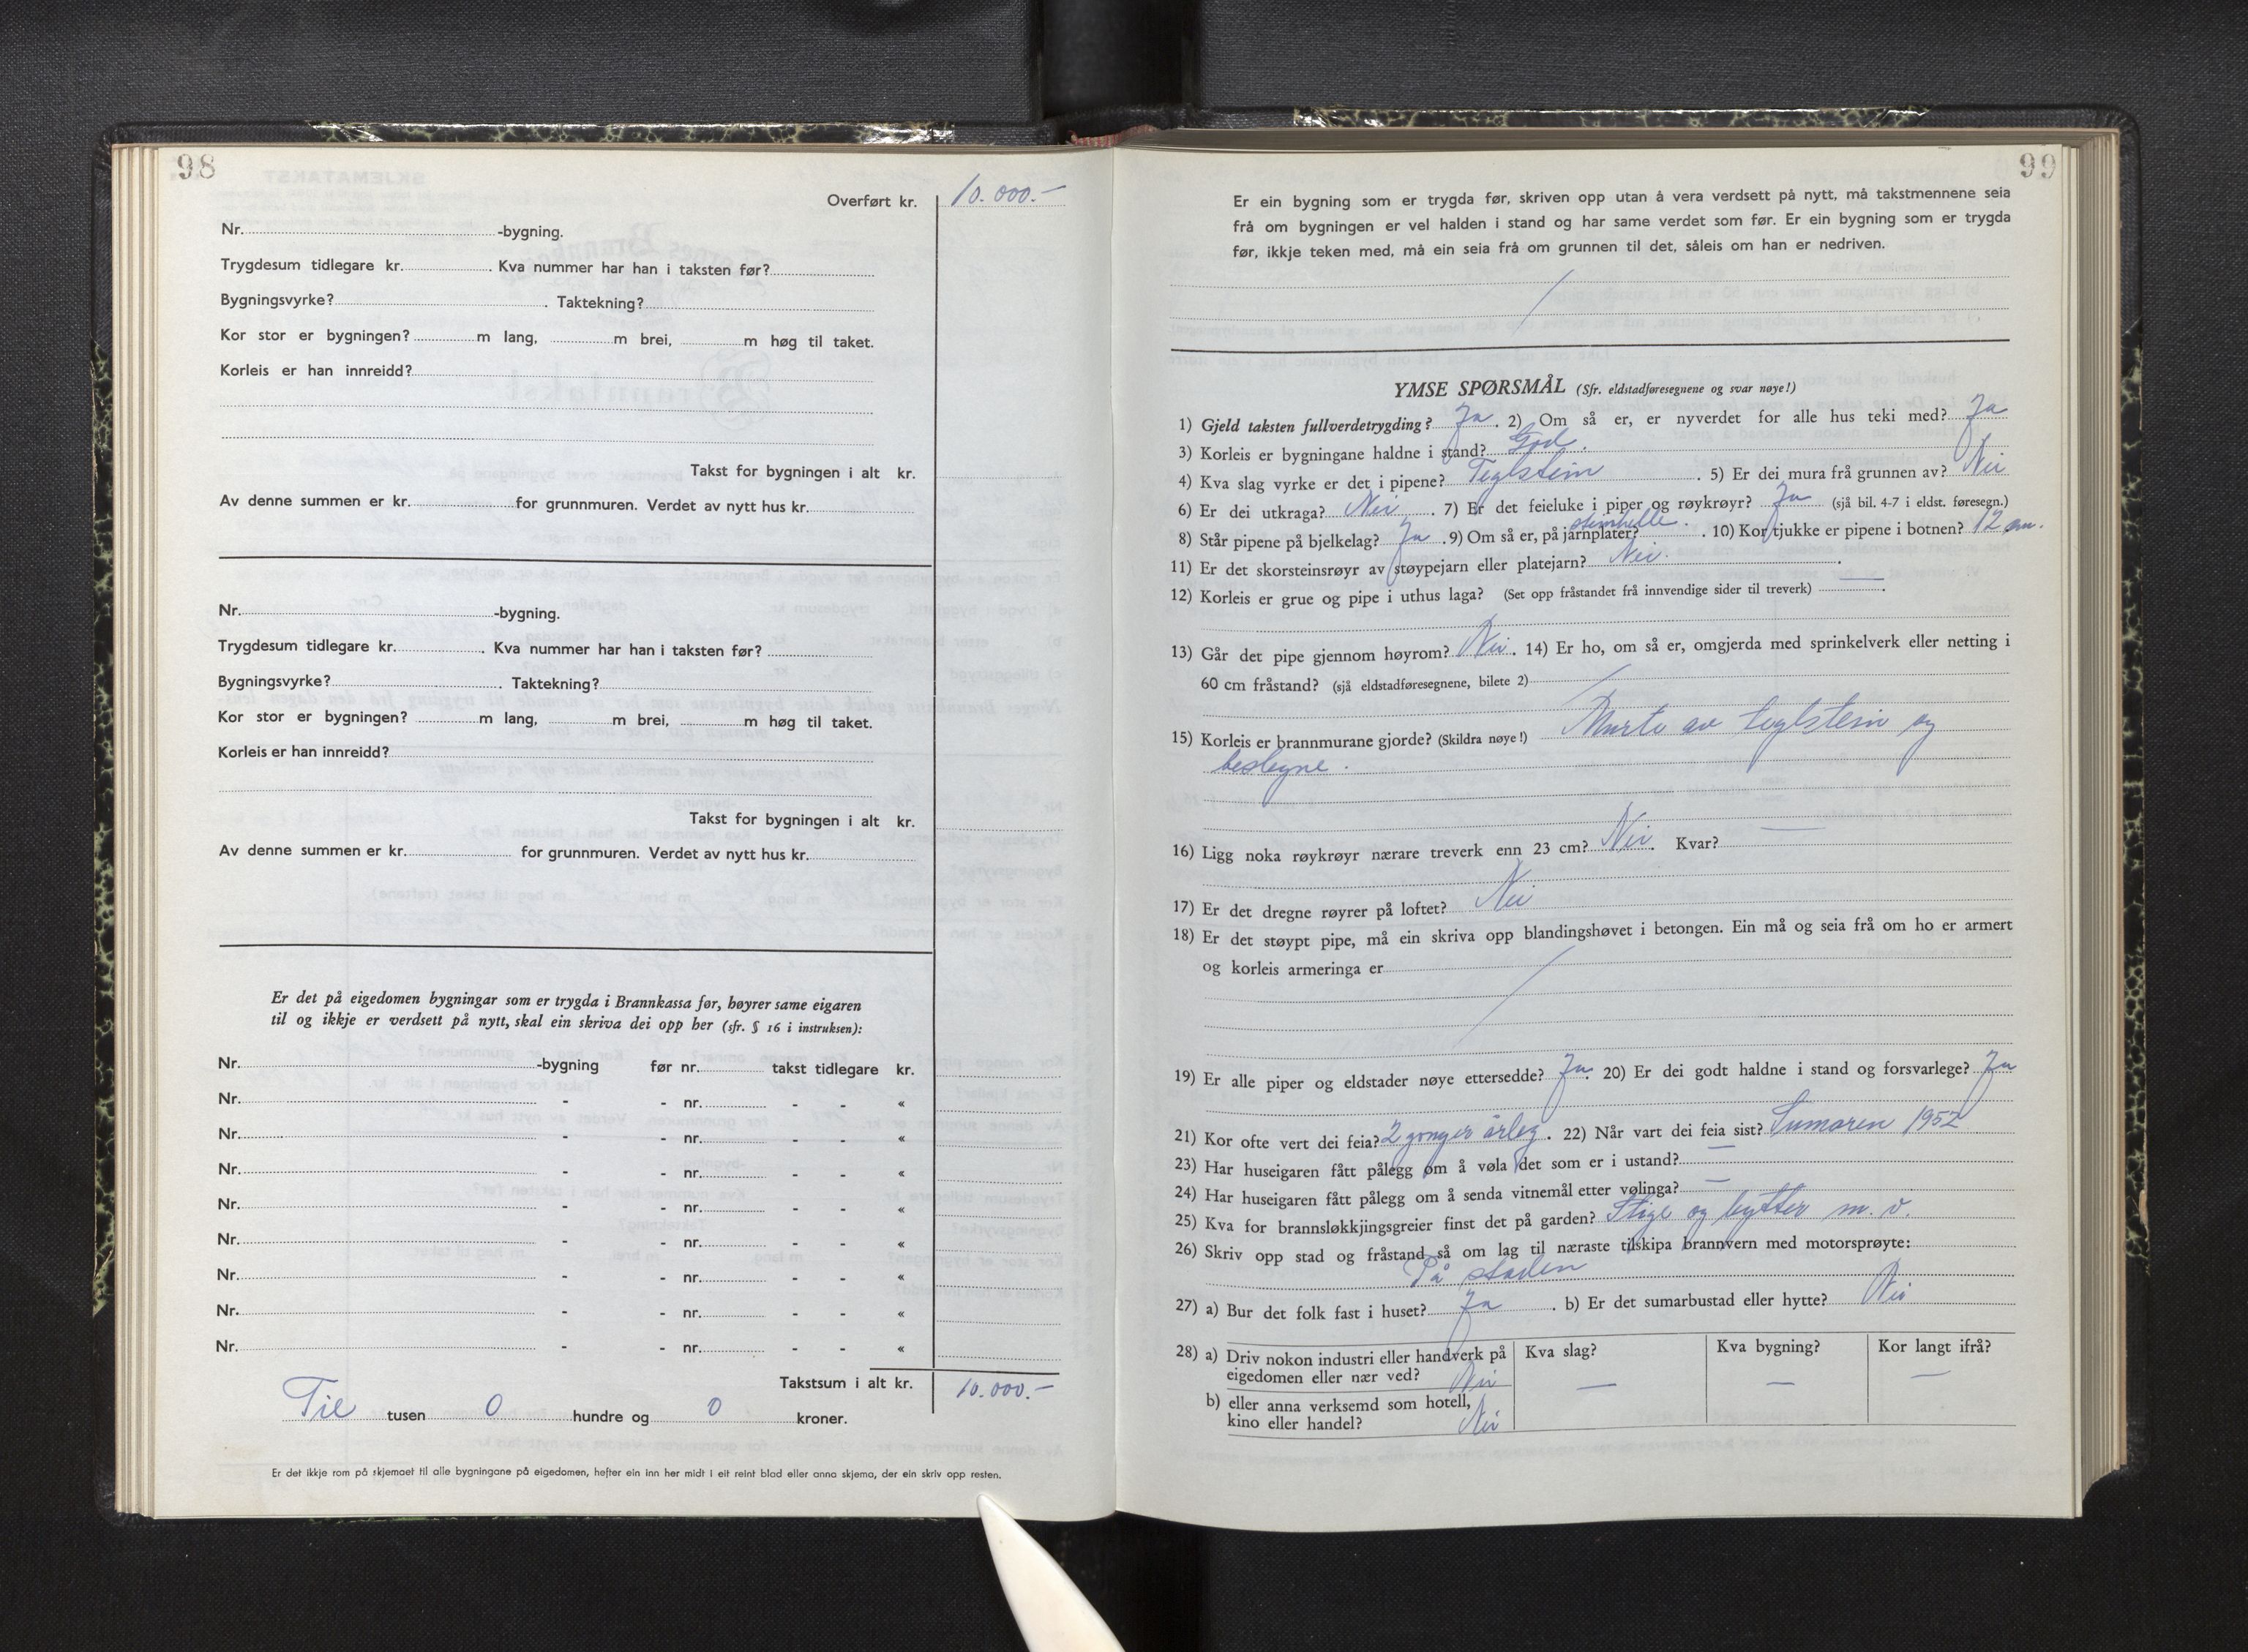 98
Overført kr. 10.000.-
Nr. -bygning.
Trygdesum tidlegare kr. . Kva nummer har han i taksten før?
Bygningsvyrke? . Taktekning?
Kor stor er bygningen? m lang, m brei, m høg til taket.
Korleis er han innreidd?
Takst for bygningen i alt kr.
Av denne summen er kr. for grunnmuren. Verdet av nytt hus kr.
Nr. -bygning.
Trygdesum tidlegare kr. . Kva nummer har han i taksten før?
Bygningsvyrke? . Taktekning?
Kor stor er bygningen? m lang, m brei, m høg til taket.
Korleis er han innreidd?
Takst for bygningen i alt kr.
Av denne summen er kr. for grunnmuren. Verdet av nytt hus kr.
Er det på eigedomen bygningar som er trygda i Brannkassa før, høyrer same eigaren
til og ikkje er verdsett på nytt, skal ein skriva dei opp her (sfr. § 16 i instruksen):
Nr. -bygning før nr. takst tidlegare kr.
Nr. - - nr. - - «
Nr. - - nr. - - «
Nr. - - nr. - - «
Nr. - - nr. - - «
Nr. - - nr. - - «
Nr. - - nr. - - «
Nr. - - nr. - - «
Nr. - - nr. - - «
Takstsum i alt kr. 10.000.-
Tie tusen 0 hundre og 0 kroner.
Er det ikkje rom på skjemaet til alle bygningane på eigedomen, hefter ein inn her midt i eit reint blad eller anna skjema, der ein skriv opp resten.
99
Er ein bygning som er trygda før, skriven opp utan å vera verdsett på nytt, må takstmennene seia
frå om bygningen er vel halden i stand og har same verdet som før. Er ein bygning som er trygda
før, ikkje teken med, må ein seia frå om grunnen til det, såleis om han er nedriven.
YMSE SPØRSMÅL (Sfr. eldstadføresegnene og svar nøye!)
1) Gjeld taksten fullverdetrygding? Ja . 2) Om så er, er nyverdet for alle hus teki med? Ja
3) Korleis er bygningane haldne i stand? God .
4) Kva slag vyrke er det i pipene? Teglstein . 5) Er dei mura frå grunnen av? Nei
6) Er dei utkraga? Nei . 7) Er det feieluke i piper og røykrøyr? Ja (sjå bil. 4-7 i eldst. føresegn.)
8) Står pipene på bjelkelag? Ja . 9) Om så er, på jarnplater? steinhelle . 10) Kor tjukke er pipene i botnen? 12 cm.
11) Er det skorsteinsrøyr av støypejarn eller platejarn? Nei .
12) Korleis er grue og pipe i uthus laga? (Set opp fråstandet frå innvendige sider til treverk) — .
13) Går det pipe gjennom høyrom? Nei . 14) Er ho, om så er, omgjerda med sprinkelverk eller netting i
60 cm fråstand? (sjå eldstadføresegnene, bilete 2)
15) Korleis er brannmurane gjorde? (Skildra nøye!) Murte av teglstein og
beslegne .
16) Ligg noka røykrøyr nærare treverk enn 23 cm? Nei . Kvar? —
17) Er det dregne røyrer på loftet? Nei
18) Er det støypt pipe, må ein skriva opp blandingshøvet i betongen. Ein må og seia frå om ho er armert
og korleis armeringa er
19) Er alle piper og eldstader nøye ettersedde? Ja . 20) Er dei godt haldne i stand og forsvarlege? Ja
21) Kor ofte vert dei feia? 2 gonger årleg . 22) Når vart dei feia sist? Sumaren 1952
23) Har huseigaren fått pålegg om å vøla det som er i ustand? —
24) Har huseigaren fått pålegg om å senda vitnemål etter vølinga? —
25) Kva for brannsløkkjingsgreier finst det på garden? Stige og bytter m. v.
26) Skriv opp stad og fråstand så om lag til næraste tilskipa brannvern med motorsprøyte:
På staden
27) a) Bur det folk fast i huset? Ja . b) Er det sumarbustad eller hytte? Nei
28) a) Driv nokon industri eller handverk på Kva slag? Kva bygning? Kor langt ifrå?
eigedomen eller nær ved? Nei — — —
b) eller anna verksemd som hotell,
kino eller handel? Nei